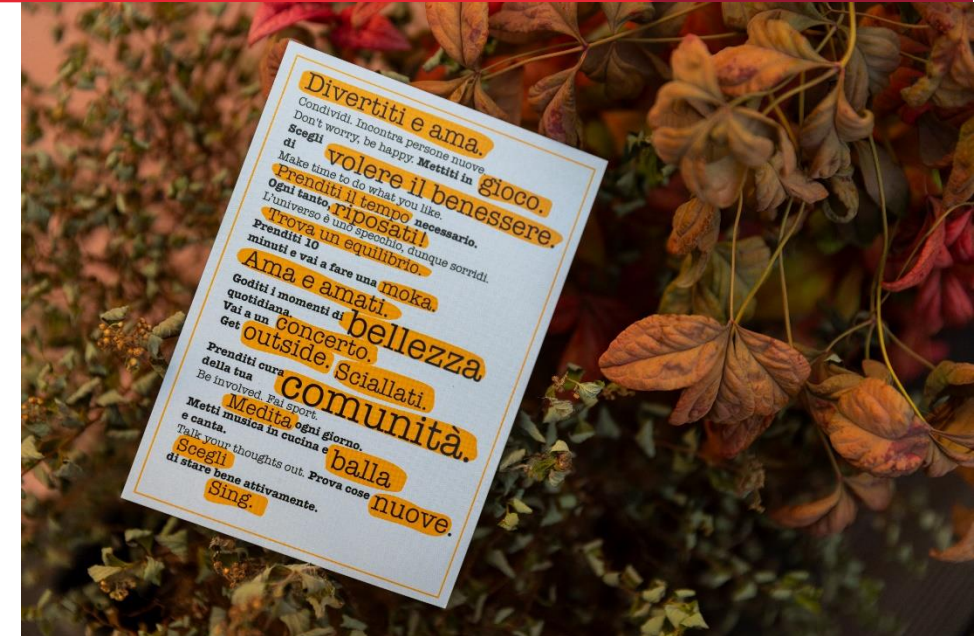 Divertiti e ama.
Condividi. Incontra persone nuove
Don't worry, be happy. Mettiti in gioco.
Scegli
di volere il benessere.
Make time to do what you like.
Prenditi il tempo necessario.
Ogni tanto, riposati!
L'universo è uno specchio, dunque sorridi.
Trova un equilibrio.
Prenditi 10
minuti e vai a fare una moka.
Ama e amati.
Goditi i momenti di bellezza
quotidiana.
Vai a un concerto.
Get outside. Sciallati.
Prenditi cura
della tua comunità.
Be involved. Fai sport.
Medita ogni giorno.
Metti musica in cucina e balla
e canta.
Talk your thoughts out. Prova cose nuove.
Scegli
di stare bene attivamente.
Sing.